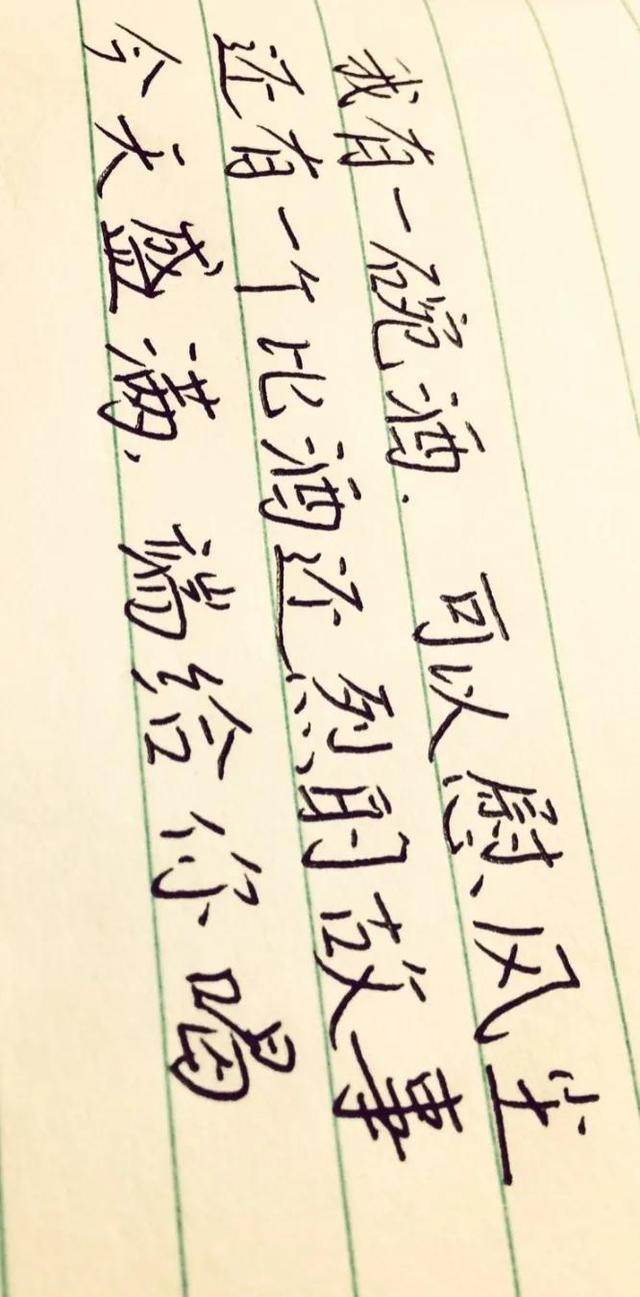 我有一碗酒.可以慰风尘
还有一个比酒还烈的故事
今天盛满,端给你喝